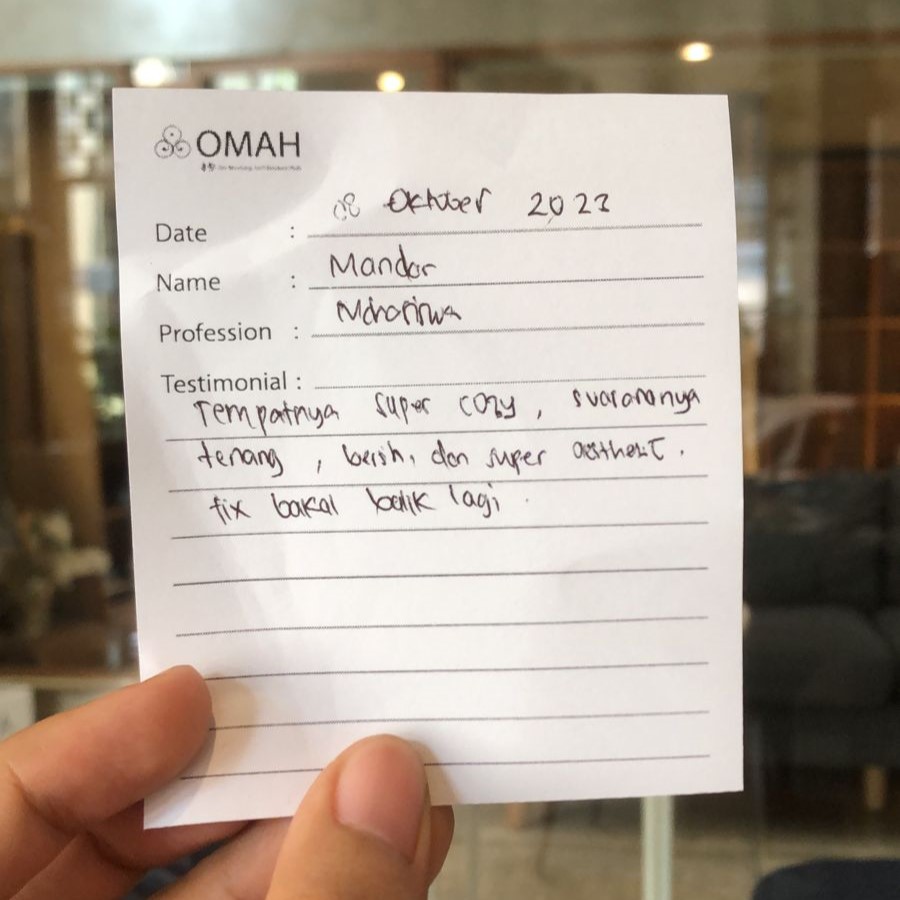 OMAH
Date : 08 Oktober 2023
Name : Mandor
Profession : Mahasiswa
Testimonial :
Tempatnya super cozy, suasananya
tenang, bersih, dan super aesthetic.
fix bakal balik lagi.